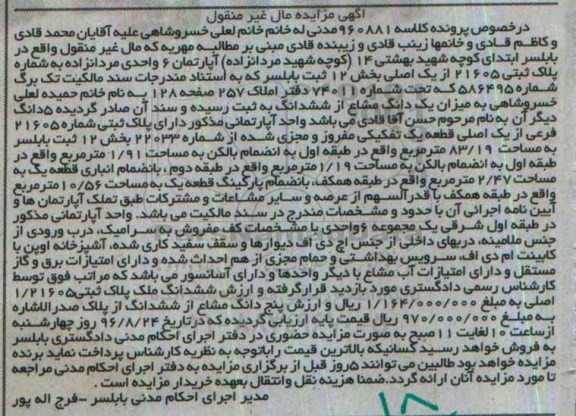 آگهی مزایده مال غیر منقول
درخصوص پرونده کلاسه ۹۶۰۸۸۱ مدنی له خانم خانم لعلی خسروشاهی علیه آقایان محمد قادی
و کاظم قادی و خانمها زینب قادی و زیبنده قادی مبنی بر مطالبه مهریه که مال غیر منقول واقع در
بابلسر ابتدای کوچه شهید بهشتی ۱۴ (کوچه شهید مردانزاده) آپارتمان ۶ واحدی مردانزاده به شماره
پلاک ثبتی ۲۱۶۰۵ از یک اصلی بخش ۱۲ ثبت بابلسر که به استناد مندرجات سند مالکیت تک برگ
شماره ۵۸۶۴۹۵ که تحت شماره ۷۴۰۱۱ دفتر املاک ۲۵۷ صفحه ۱۲۸ به نام خانم حمیده لعلی
خسروشاهی به میزان یک دانگ مشاع از ششدانگ به ثبت رسیده و سند آن صادر گردیده ۵دانگ
دیگر آن به نام مرحوم حسن آقا قادی می باشد واحد آپارتمانی مذکور دارای پلاک ثبتی شماره ۲۱۶۰۵
فرعی از یک اصلی قطعه یک تفکیکی مفروز و مجزی شده از شماره ۲۲۰۳۳ بخش ۱۲ ثبت بابلسر
به مساحت ۸۳/۱۹ مترمربع واقع در طبقه اول به انضمام بالکن به مساحت ۱/۹۱ مترمربع واقع در
طبقه اول به انضمام بالکن به مساحت ۱/۱۹ مترمربع واقع در طبقه دوم ، بانضمام انباری قطعه یک به
مساحت ۲/۴۷ مترمربع واقع در طبقه همکف، بانضمام پارکینگ قطعه یک به مساحت ۱۰/۵۶ مترمربع
واقع در طبقه همکف با قدرالسهم از عرصه و سایر مشاعات و مشترکات طبق تملک آپارتمان ها و
آیین نامه اجرائی آن با حدود و مشخصات مندرج در سند مالکیت می باشد. واحد آپارتمانی مذکور
در طبقه اول شرقی یک مجموعه ۶واحدی با مشخصات کف مفروش به سرامیک، درب ورودی از
جنس ملامینه، دربهای داخلی از جنس اچ دی اف دیوارها و سقف سفید کاری شده، آشپزخانه اوپن با
کابینت ام دی اف، سرویس بهداشتی و حمام مجزی از هم احداث شده و دارای امتیازات برق و گاز
مستقل و دارای امتیازات آب مشاع با دیگر واحدها و دارای آسانسور می باشد که مراتب فوق توسط
کارشناس رسمی دادگستری مورد بازدید قرارگرفته و ارزش ششدانگ ملک پلاک ثبتی ۱/۲۱۶۰۵
اصلی به مبلغ ۱/۱۶۴/۰۰۰/۰۰۰ ریال و ارزش پنج دانگ مشاع از ششدانگ از پلاک صدرالاشاره
به مبلغ ۹۷۰/۰۰۰/۰۰۰ ریال قیمت پایه ارزیابی گردیده که درتاریخ ۹۶/۸/۲۴ روز چهارشنبه
از ساعت ۱۰ لغایت ۱۱ صبح به صورت مزایده حضوری در دفتر اجرای احکام مدنی دادگستری بابلسر
به فروش خواهد رسید کسانیکه بالاترین قیمت را باتوجه به نظریه کارشناس پرداخت نماید برنده
مزایده خواهد بود طالبین می توانند ۵روز قبل از برگزاری مزایده به دفتر اجرای احکام مدنی مراجعه
تا مورد مزایده آنان ارائه گردد.ضمنا هزینه نقل وانتقال بعهده خریدار مزایده است .
مدیر اجرای احکام مدنی بابلسر –فرج اله پور
۱۸